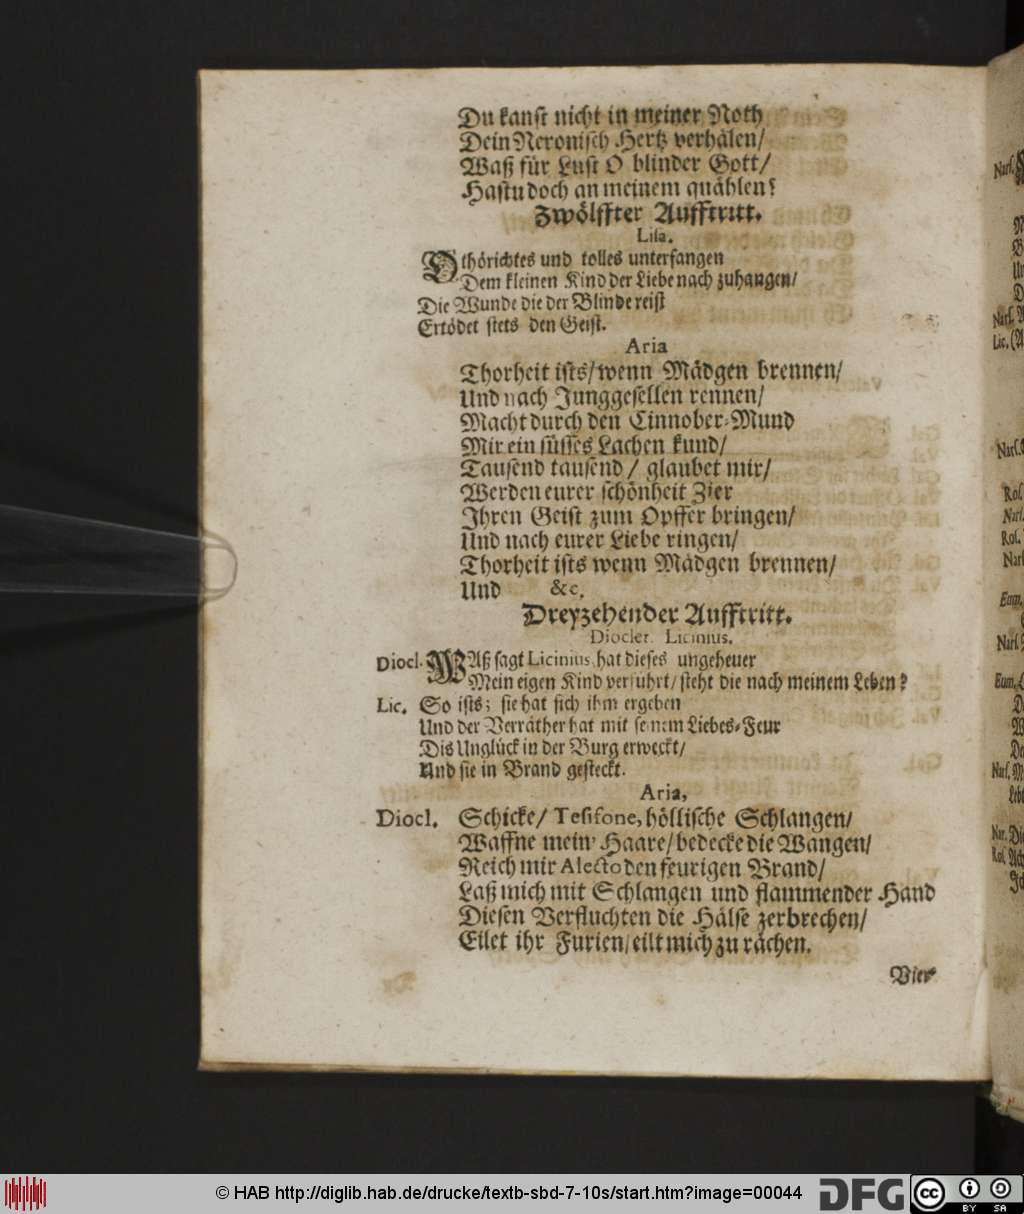 Du kanst nicht in meiner Noth
Dein Neronisch Hertz verhälen/
Waß für Lust O blinder Gott/
Hastu doch an meinem quählen?
Zwölffter Aufftritt.
Lisa.
O thörichtes und tolles unterfangen
Dem kleinen Kind der Liebe nach zuhangen/
Die Wunde die der Blinde reist
Ertödet stets den Geist.
Aria
Thorheit ists/ wenn Mädgen brennen/
Und nach Junggesellen rennen/
Macht durch den Cinnober-Mund
Mir ein süsses Lachen kund/
Tausend tausend/ glaubet mir/
Werden eurer schönheit Zier
Ihren Geist zum Opffer bringen/
Und nach eurer Liebe ringen/
Thorheit ists wenn Mädgen brennen/
Und &c.
Dreyzehender Aufftritt.
Diocler. Licinius.
Diocl. WAß sagt Licinius, hat dieses ungeheuer
Mein eigen Kind verführt/ steht die nach meinem Leben?
Lic. So ists; sie hat sich ihm ergeben
Und der Verräther hat mit seinem Liebes-Feur
Dis Unglück in der Burg erweckt/
Und sie in Brand gesteckt.
Aria,
Diocl. Schicke/ Tesifone, höllische Schlangen/
Waffne mein' Haare/ bedecke die Wangen/
Reich mir Alecto den feurigen Brand/
Laß mich mit Schlangen und flammender Hand
Diesen Verfluchten die Hälse zerbrechen/
Eilet ihr Furien/ eilt mich zu rächen.
Vier-
Narl.
Narl.
Lic. (A
Narl.
Rol.
Narl.
Rol.
Narl
Eum.
Narl.
Eum.
Narl. M
Lebe
Nar. Die
Rol. Ach
© HAB http://diglib.hab.de/drucke/textb-sbd-7-10s/start.htm?image=00044
DFG
cc BY SA